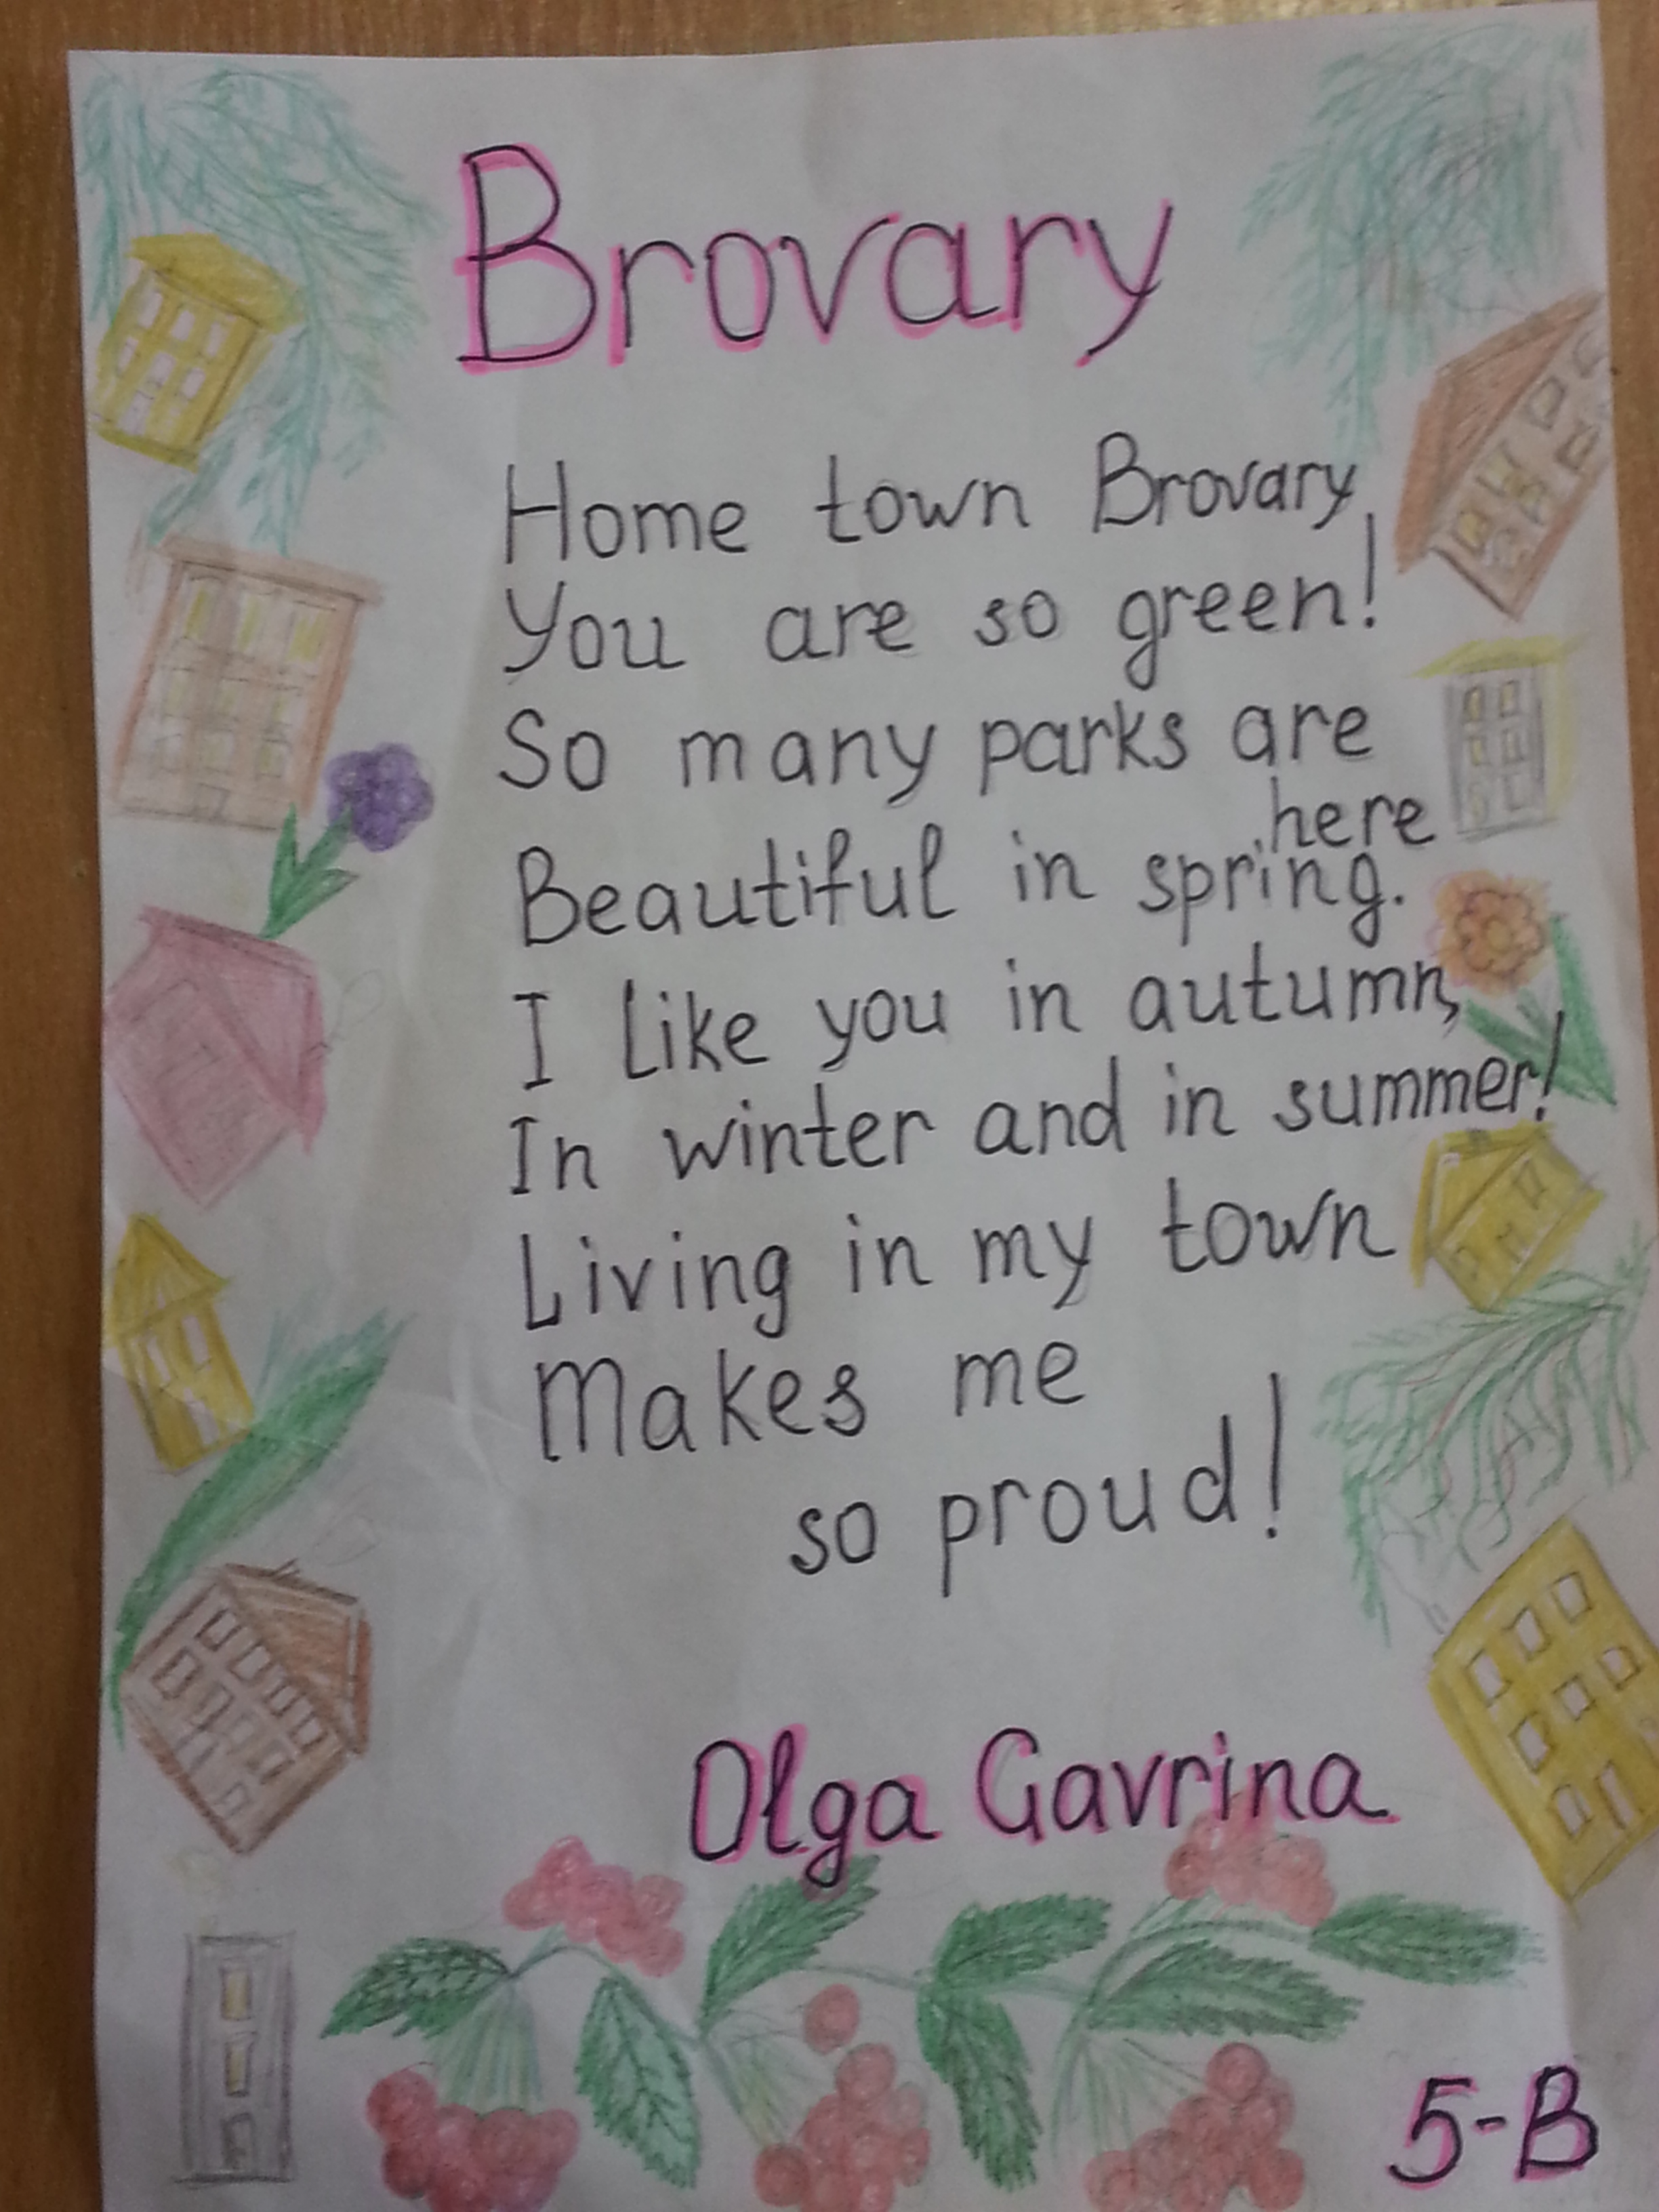 Brovary
Home town Brovary,
You are so green!
So many parks are
here
Beautiful in spring.
I like you in autumn,
In winter and in summer!
Living in my town
Makes me
so proud!
Olga Gavrina
5-B